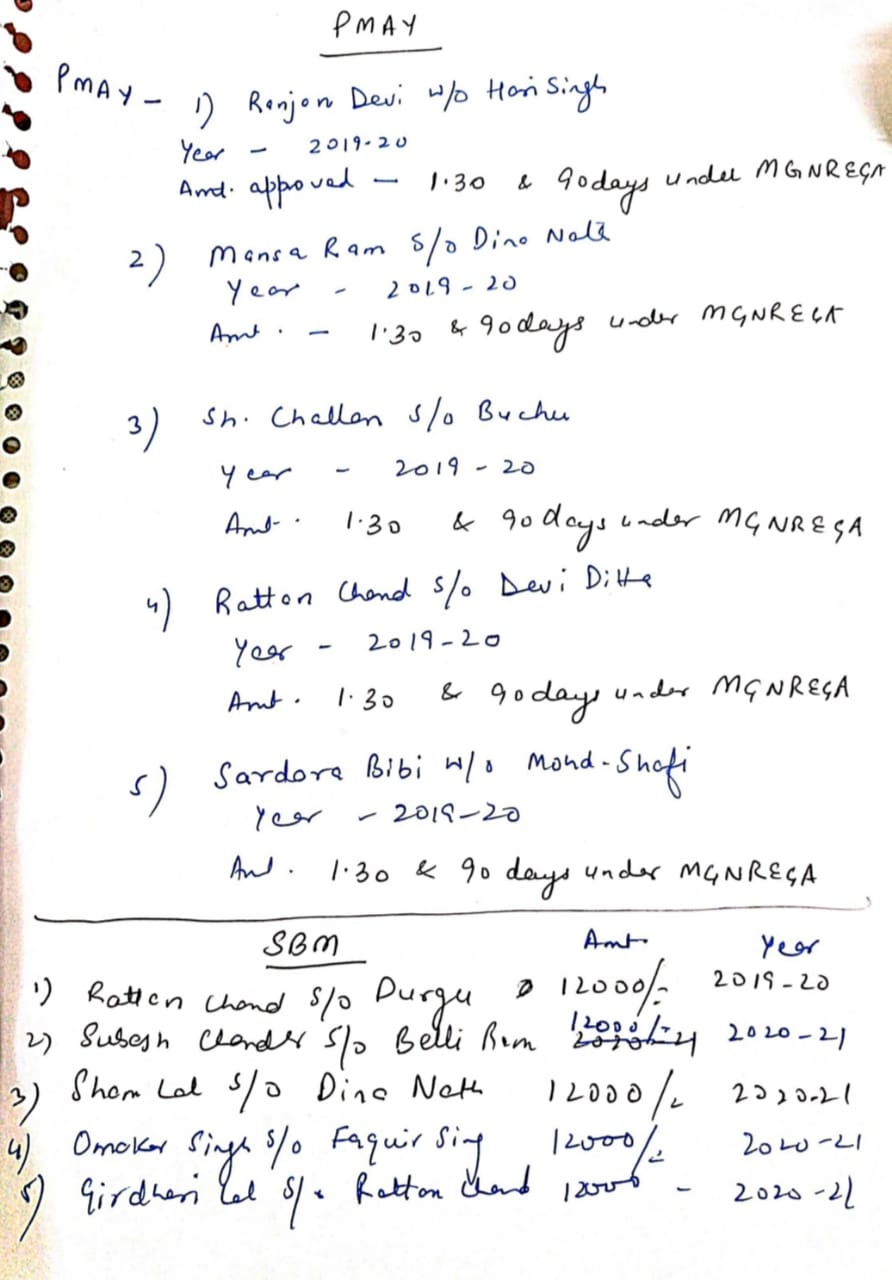 PMAY
PMAY - 1) Ranjan Devi w/o Hari Singh
Year - 2019-20
Amt. appoved - 1.30 & 90days under MGNREGA
2) Mansa Ram S/o Dina Nath
Year - 2019-20
Amt. - 1.30 & 90days under MGNREGA
3) Sh. Challan S/o Buchu
Year - 2019-20
Amt. 1.30 & 90 days under MGNREGA
4) Rattan Chand S/o Devi Ditta
Year - 2019-20
Amt. 1.30 & 90days under MGNREGA
5) Sardara Bibi w/o Mohd-Shafi
Year - 2019-20
Amt. 1.30 & 90 days under MGNREGA
SBM Amt. Year
1) Rattan Chand S/o Durga 12000/- 2019-20
2) Subash Chander S/o Belli Ram 12000/- 2020-21
3) Sham Lal S/o Dina Nath 12000/- 2020-21
4) Omakar Singh S/o Faquir Sing 12000/- 2020-21
5) Girdhari Lal S/o Rattan Chand 12000 - 2020-21